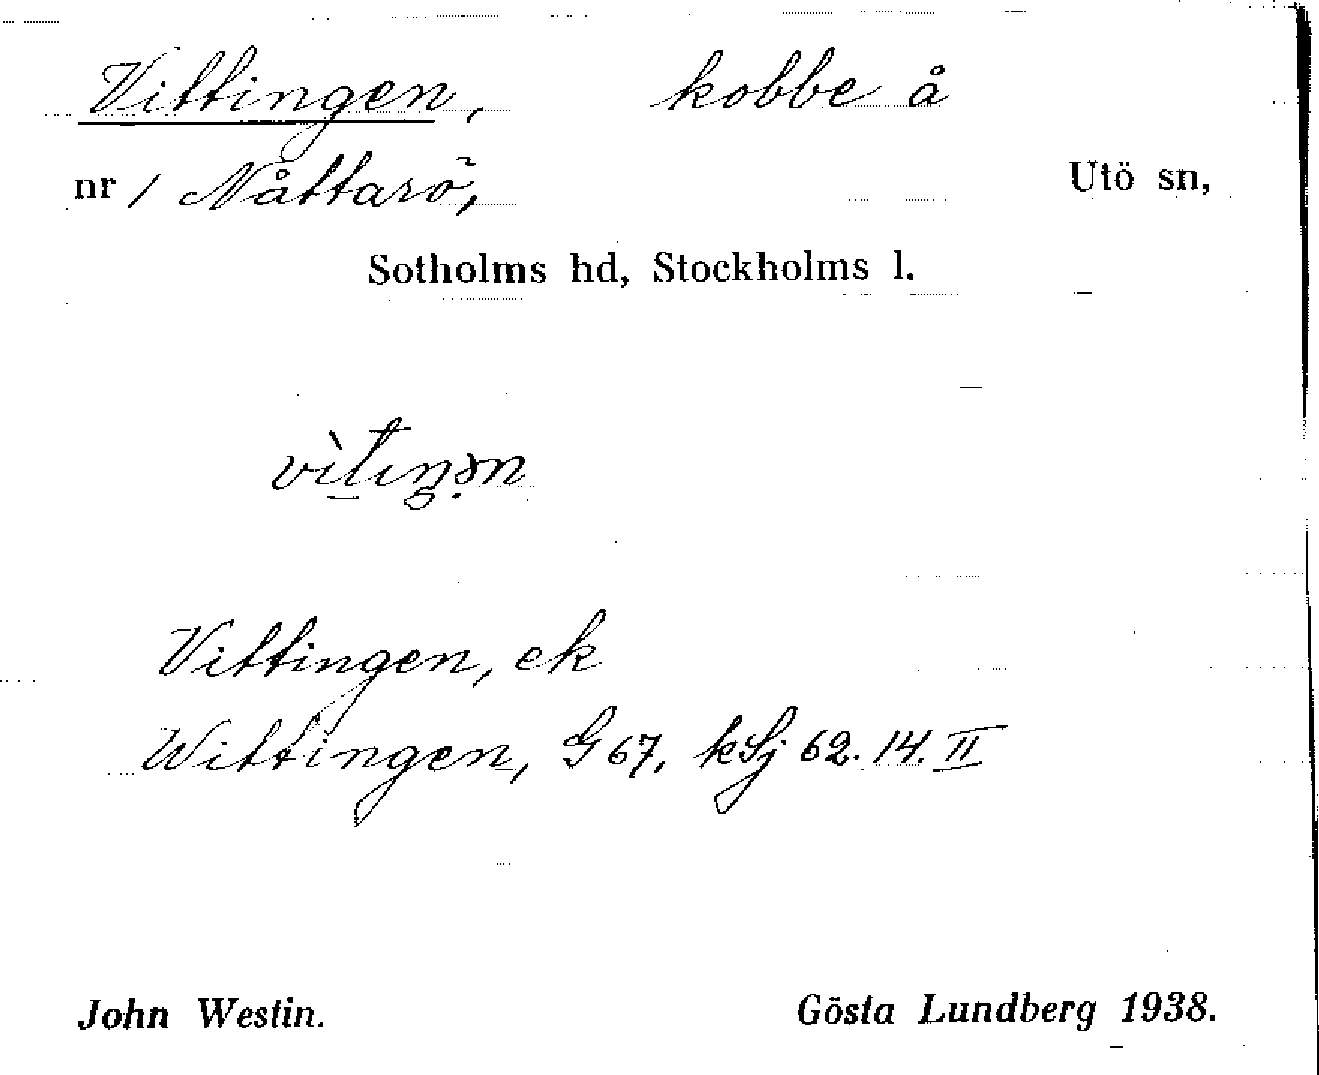 Vittingen, kobbe å
nr 1 Nåttarö, Utö sn,
Sotholms hd, Stockholms l.
vìtɩŋən
Vittingen, ek
Wittingen, G 67, kSj 62. 14. II
John Westin. Gösta Lundberg 1938.